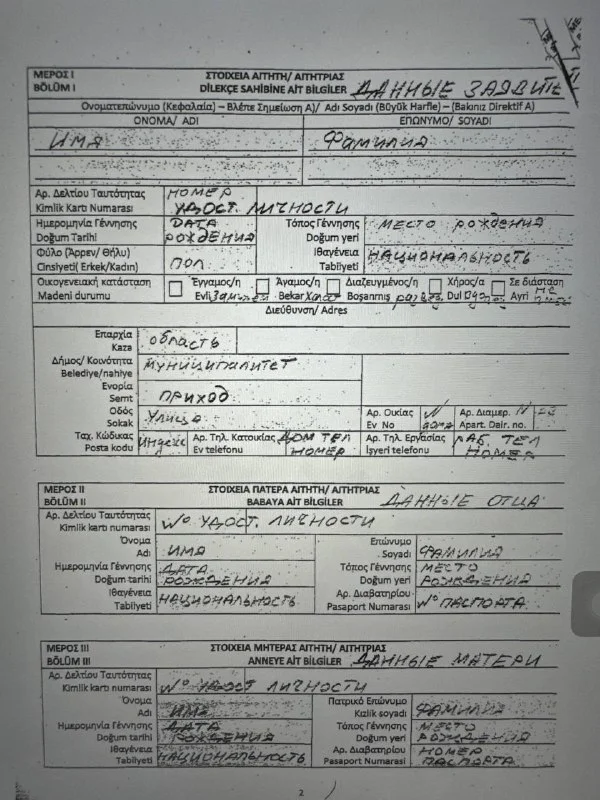 ΜΕΡΟΣ Ι ΣΤΟΙΧΕΙΑ ΑΙΤΗΤΗ/ ΑΙΤΗΤΡΙΑΣ
BÖLÜM I DİLEKÇE SAHİBİNE AİT BİLGİLER ДАННЫЕ ЗАЯВИТЕ
Ονοματεπώνυμο (Κεφαλαία) – Βλέπε Σημείωση Α)/ Adı Soyadı (Büyük Harfle) – (Bakınız Direktif A)
ΟΝΟΜΑ/ ADI ΕΠΩΝΥΜΟ/ SOYADI
ИМЯ ФАМИЛИЯ
Αρ. Δελτίου Ταυτότητας НОМЕР
Kimlik Kartı Numarası УДОСТ. ЛИЧНОСТИ
Ημερομηνία Γέννησης ДАТА Τόπος Γέννησης МЕСТО РОЖДЕНИЯ
Doğum Tarihi РОЖДЕНИЯ Doğum yeri
Φύλο (Άρρεν/ Θήλυ) ПОЛ Ιθαγένεια НАЦИОНАЛЬНОСТЬ
Cinsiyeti( Erkek/Kadın) Tabiiyeti
Οικογενειακή κατάσταση Έγγαμος/η Άγαμος/η Διαζευγμένος/η Χήρος/α Σε διάσταση
Madeni durumu Evli Bekar Boşanmış Dul Ayrı
Διεύθυνση/ Adres
Επαρχία ОБЛАСТЬ
Kaza
Δήμος/ Κοινότητα МУНИЦИПАЛИТЕТ
Belediye/nahiye
Ενορία ПРИХОД
Semt
Οδός УЛИЦА Αρ. Οικίας N Αρ. Διαμερ. N
Sokak Ev No ДОМА Apart. Dair. no.
Ταχ. Κώδικας ИНДЕКС Αρ. Τηλ. Κατοικίας ДОМ ТЕЛ Αρ. Τηλ. Εργασίας РАБ. ТЕЛ
Posta kodu Ev telefonu НОМЕР İşyeri telefonu НОМЕР
ΜΕΡΟΣ ΙΙ ΣΤΟΙΧΕΙΑ ΠΑΤΕΡΑ ΑΙΤΗΤΗ/ ΑΙΤΗΤΡΙΑΣ
BÖLÜM II BABAYA AİT BİLGİLER ДАННЫЕ ОТЦА
Αρ. Δελτίου Ταυτότητας N° УДОСТ. ЛИЧНОСТИ
Kimlik kartı numarası
Όνομα ИМЯ Επώνυμο ФАМИЛИЯ
Adı Soyadı
Ημερομηνία Γέννησης ДАТА Τόπος Γέννησης МЕСТО
Doğum tarihi РОЖДЕНИЯ Doğum yeri РОЖДЕНИЯ
Ιθαγένεια НАЦИОНАЛЬНОСТЬ Αρ. Διαβατηρίου N° ПАСПОРТА
Tabiiyeti Pasaport Numarası
ΜΕΡΟΣ ΙΙΙ ΣΤΟΙΧΕΙΑ ΜΗΤΕΡΑΣ ΑΙΤΗΤΗ/ ΑΙΤΗΤΡΙΑΣ
BÖLÜM III ANNEYE AİT BİLGİLER ДАННЫЕ МАТЕРИ
Αρ. Δελτίου Ταυτότητας N° УДОСТ ЛИЧНОСТИ
Kimlik kartı numarası
Όνομα ИМЯ Πατρικό Επώνυμο ФАМИЛИЯ
Adı Kızlık soyadı
Ημερομηνία Γέννησης ДАТА Τόπος Γέννησης МЕСТО
Doğum tarihi РОЖДЕНИЯ Doğum yeri РОЖДЕНИЯ
Ιθαγένεια НАЦИОНАЛЬНОСТЬ Αρ. Διαβατηρίου НОМЕР
Tabiiyeti Pasaport Numarası ПАСПОРТА
2